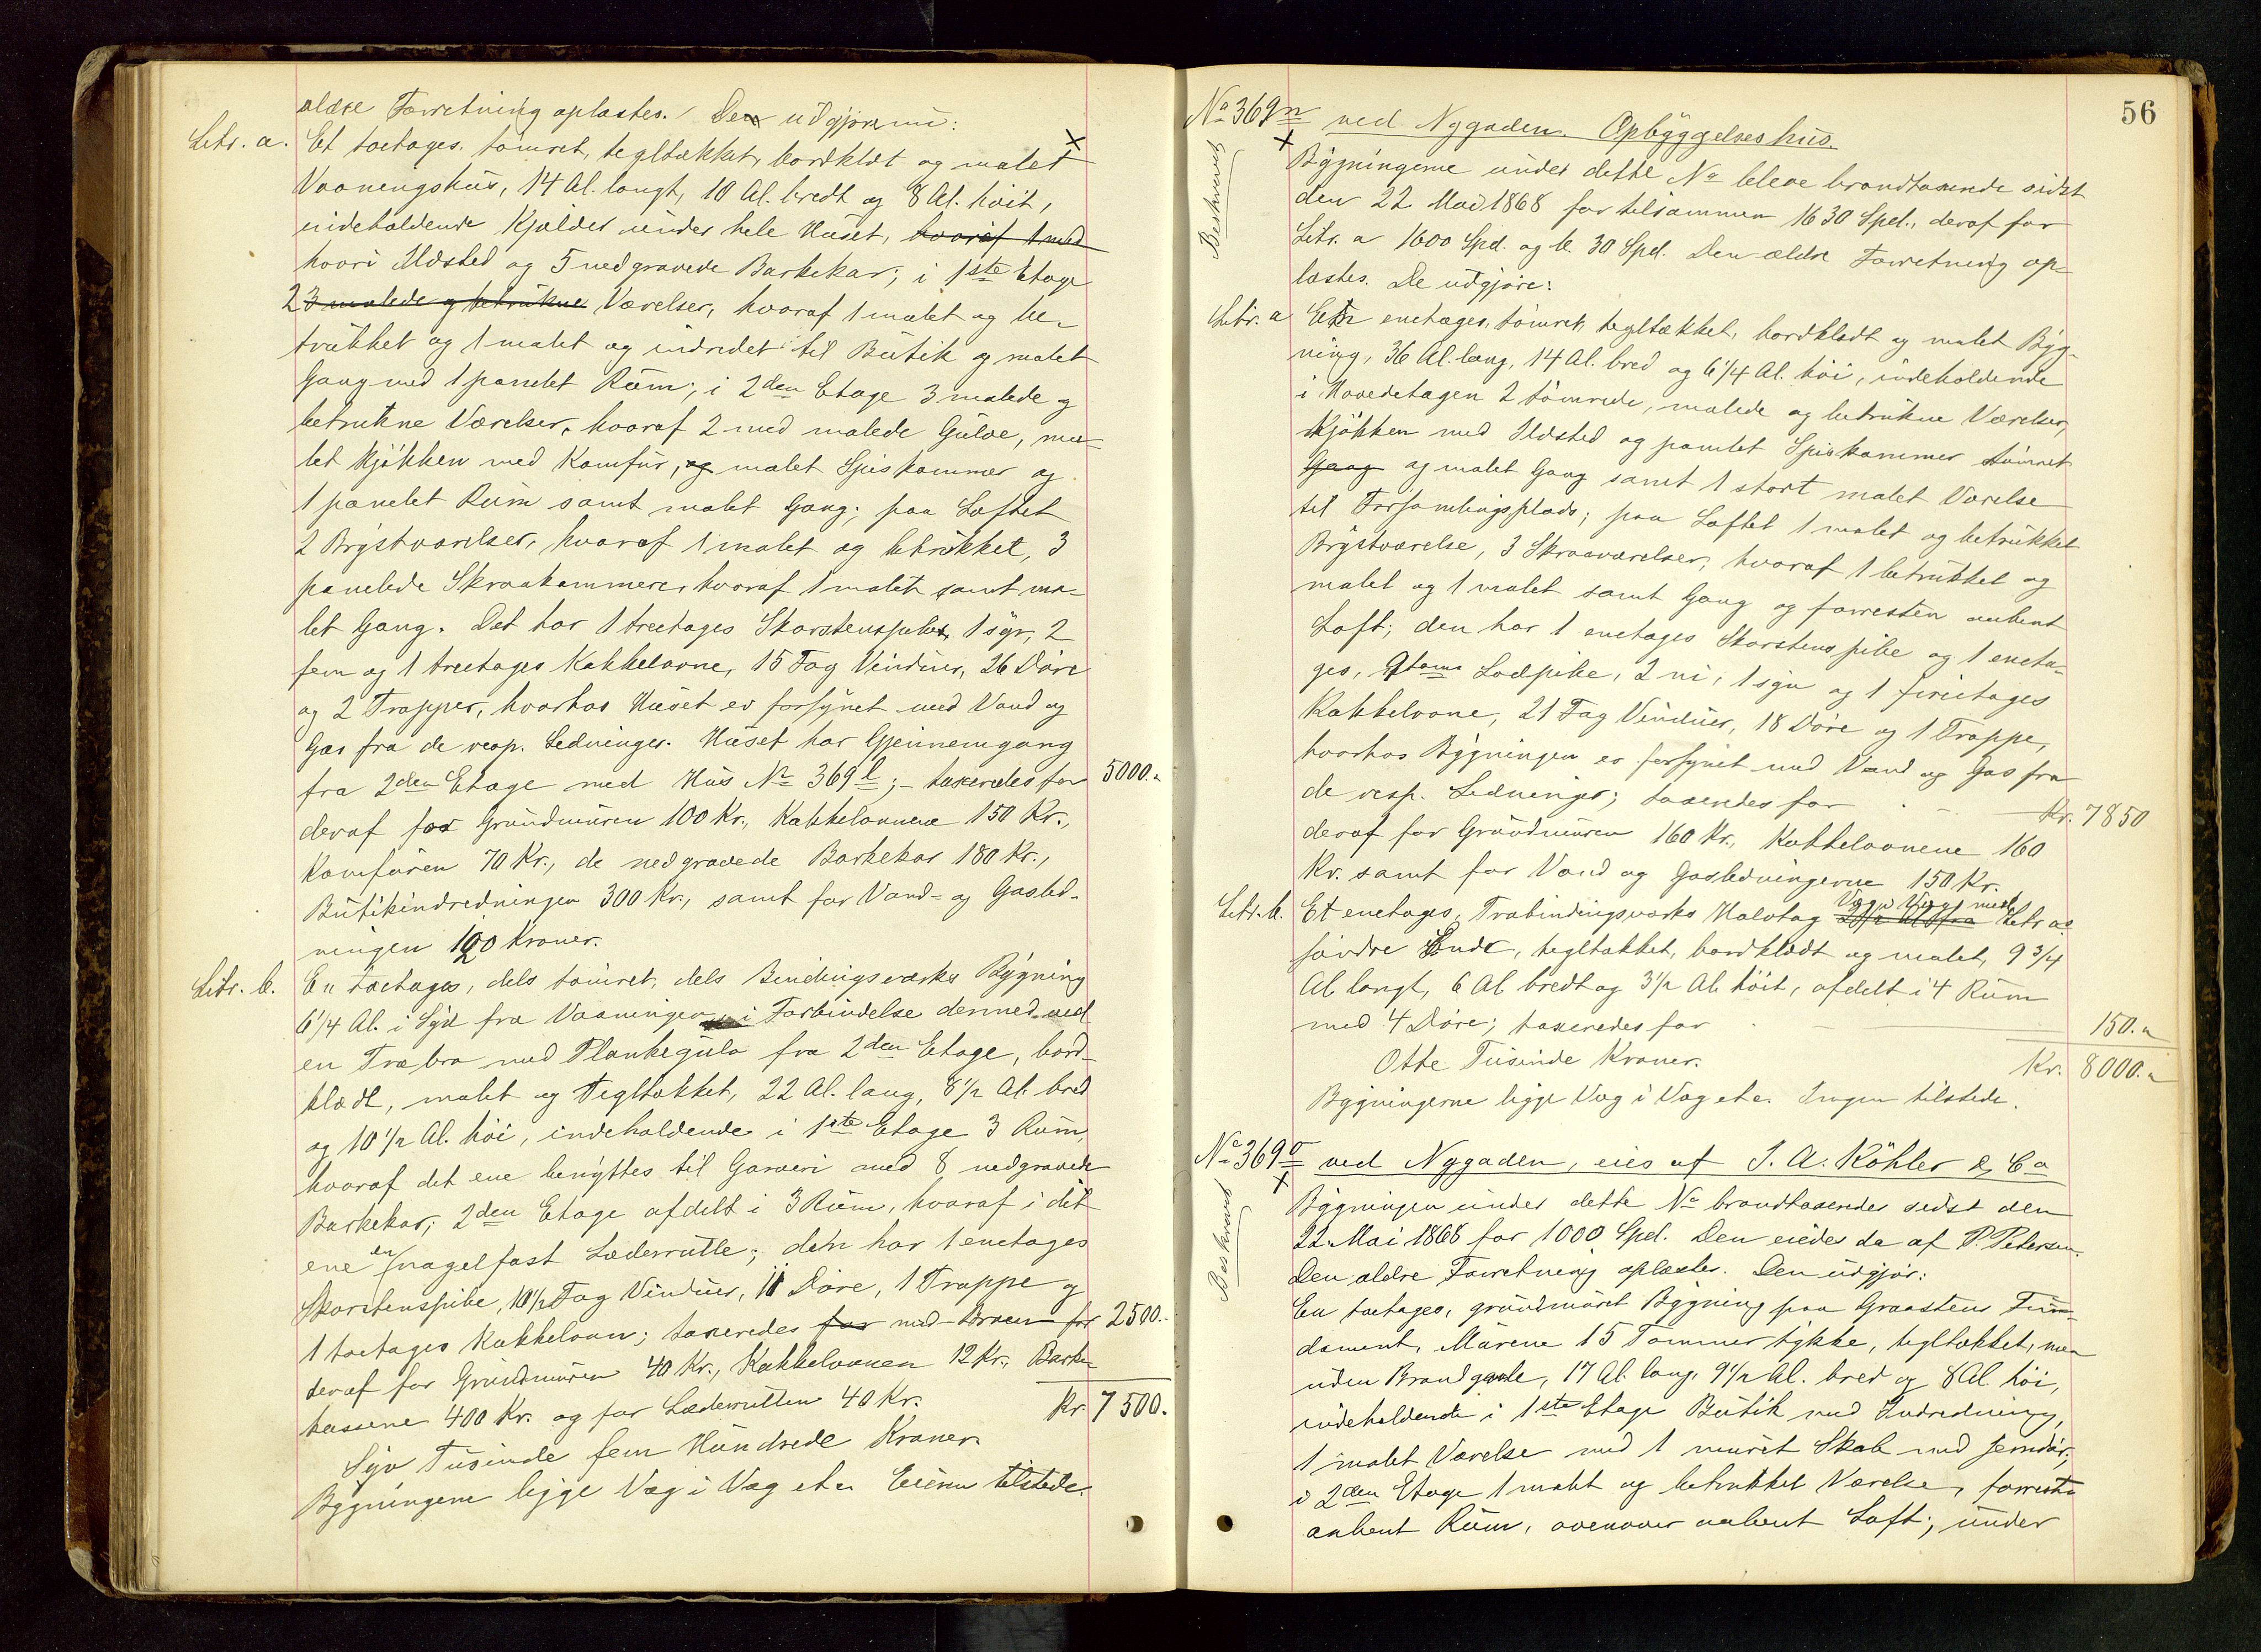 ældre Forretning oplæstes. Den udgjør nu:
Litr. a. Et toetages, tømret, tegltækket, bordklædt og malet
Vaaningshus, 14 Al. langt, 10 Al. bredt og 8 Al. høit,
indeholdende Kjælder under hele Huset, hvoraf 1 med
hvori Ildsted og 5 nedgravede Barkekar; i 1ste Etage
2 3 malede og betrukne Værelser, hvoraf 1 malet og be-
trukket og 1 malet og indredet til Butik og malet
Gang med 1 panelet Rum; i 2den Etage 3 malede og
betrukne Værelser, hvoraf 2 med malede Gulve, ma-
let Kjøkken med Komfur, og malet Spiskammer og
1 panelet Rum samt malet Gang; paa Loftet
2 Brystværelser, hvoraf 1 malet og betrukket, 3
panelede Skraakammere, hvoraf 1 malet samt ma-
let Gang. Det har 1 treetages Skorstenspibe, 1 syv, 2
fem og 1 treetages Kakkelovne, 15 Fag Vinduer, 26 Døre
og 2 Trapper, hvorhos Huset er forsynet med Vand og
Gas fra de resp. Ledninger. Huset har Gjennemgang
fra 2den Etage med Hus No 369l; - taxeredes for 5000.-
deraf for Grundmuren 100 Kr., Kakkelovnene 150 Kr.,
Komfuren 70 Kr., de nedgravede Barkekar 180 Kr.,
Butikindredningen 300 Kr., samt for Vand- og Gasled-
ningen 120 Kroner.
Litr. b. En toetages, dels tømret, dels Bindingsværks Bygning
6 1/4 Al. i Syd fra Vaaningen, i Forbindelse dermed ved
en Træbro med Plankegulv fra 2den Etage, bord-
klædt, malet og tegltækket, 22 Al. lang, 8 1/2 Al. bred
og 10 1/2 Al. høi, indeholdende i 1ste Etage 3 Rum,
hvoraf det ene benyttes til Garveri med 8 nedgravede
Barkekar; 2den Etage afdelt i 3 Rum, hvoraf i det
ene en nagelfast Læderrulle; den har 1 enetages
Skorstenspibe, 10 1/2 Fag Vinduer, 11 Døre, 1 Trappe og
1 toetages Kakkelovn; taxeredes for med Broen for 2500.-
deraf for Grundmuren 40 Kr., Kakkelovnen 12 Kr., Barke-
kassene 400 Kr. og for Læderrullen 40 Kr. Kr. 7500.
Syv Tusinde fem Hundrede Kroner.
Bygningerne ligge Væg i Væg etc. Eieren tilstede.
56
No 369n ved Nygaden. Opbyggelseshus.
Beskrevet
Bygningerne under dette No bleve brandtaxerede sidst
den 22 Mai 1868 for tilsammen 1630 Spd., deraf for
Litr. a 1600 Spd. og b. 30 Spd. Den ældre Forretning op-
læstes. De udgjøre:
Litr. a En enetages, tømret, tegltækket, bordklædt og malet Byg-
ning, 36 Al. lang, 14 Al. bred og 6 1/4 Al. høi, indeholdende
i Hovedetagen 2 tømrede, malede og betrukne Værelser,
Kjøkken med Ildsted og panelet Spiskammer tømret
Gang og malet Gang samt 1 stort malet Værelse
til Forsamlingsplads; paa Loftet 1 malet og betrukket
Brystværelse, 3 Skraaværelser, hvoraf 1 betrukket og
malet og 1 malet samt Gang og forresten aabent
Loft; den har 1 enetages Skorstenspibe og 1 eneta-
ges, 9toms Lodpibe, 2 ni, 1 syv og 1 fireetages
Kakkelovne, 21 Fag Vinduer, 18 Døre og 1 Trappe,
hvorhos Bygningen er forsynet med Vand og Gas fra
de resp. Ledninger; taxeredes for Kr. 7850
deraf for Grundmuren 160 Kr., Kakkelovnene 160
Kr. samt for Vand og Gasledningerne 150 Kr.
Litr. b. Et enetages, Træbindingsværks Halvtag Væg i Væg med Litr. a's
søndre Ende, tegltækket, bordklædt og malet, 9 3/4
Al. langt, 6 Al. bredt og 3 1/2 Al. høit, afdelt i 4 Rum
med 4 Døre; taxeredes for 150.-
Otte Tusinde Kroner. Kr. 8000.-
Bygningerne ligge Væg i Væg etc. Ingen tilstede.
No 369o ved Nygaden, eies af J. A. Köhler & Co
Beskrevet
Bygningen under dette No brandtaxeredes sidst den
22. Mai 1868 for 1000 Spd. Den eiedes da af P. Petersen.
Den ældre Forretning oplæstes. Den udgjør:
En toetages, grundmuret Bygning paa Graastens Fun-
dament, Murene 15 Tommer tykke, tegltækket, men
uden Brandgavle, 17 Al. lang, 9 1/2 Al. bred og 8 Al. høi,
indeholdende i 1ste Etage Butik med Indredning,
1 malet Værelse med 1 muret Skab med Jerndør;
i 2den Etage 1 malet og betrukket Værelse, forresten
aabent Rum, ovenover aabent Loft; under